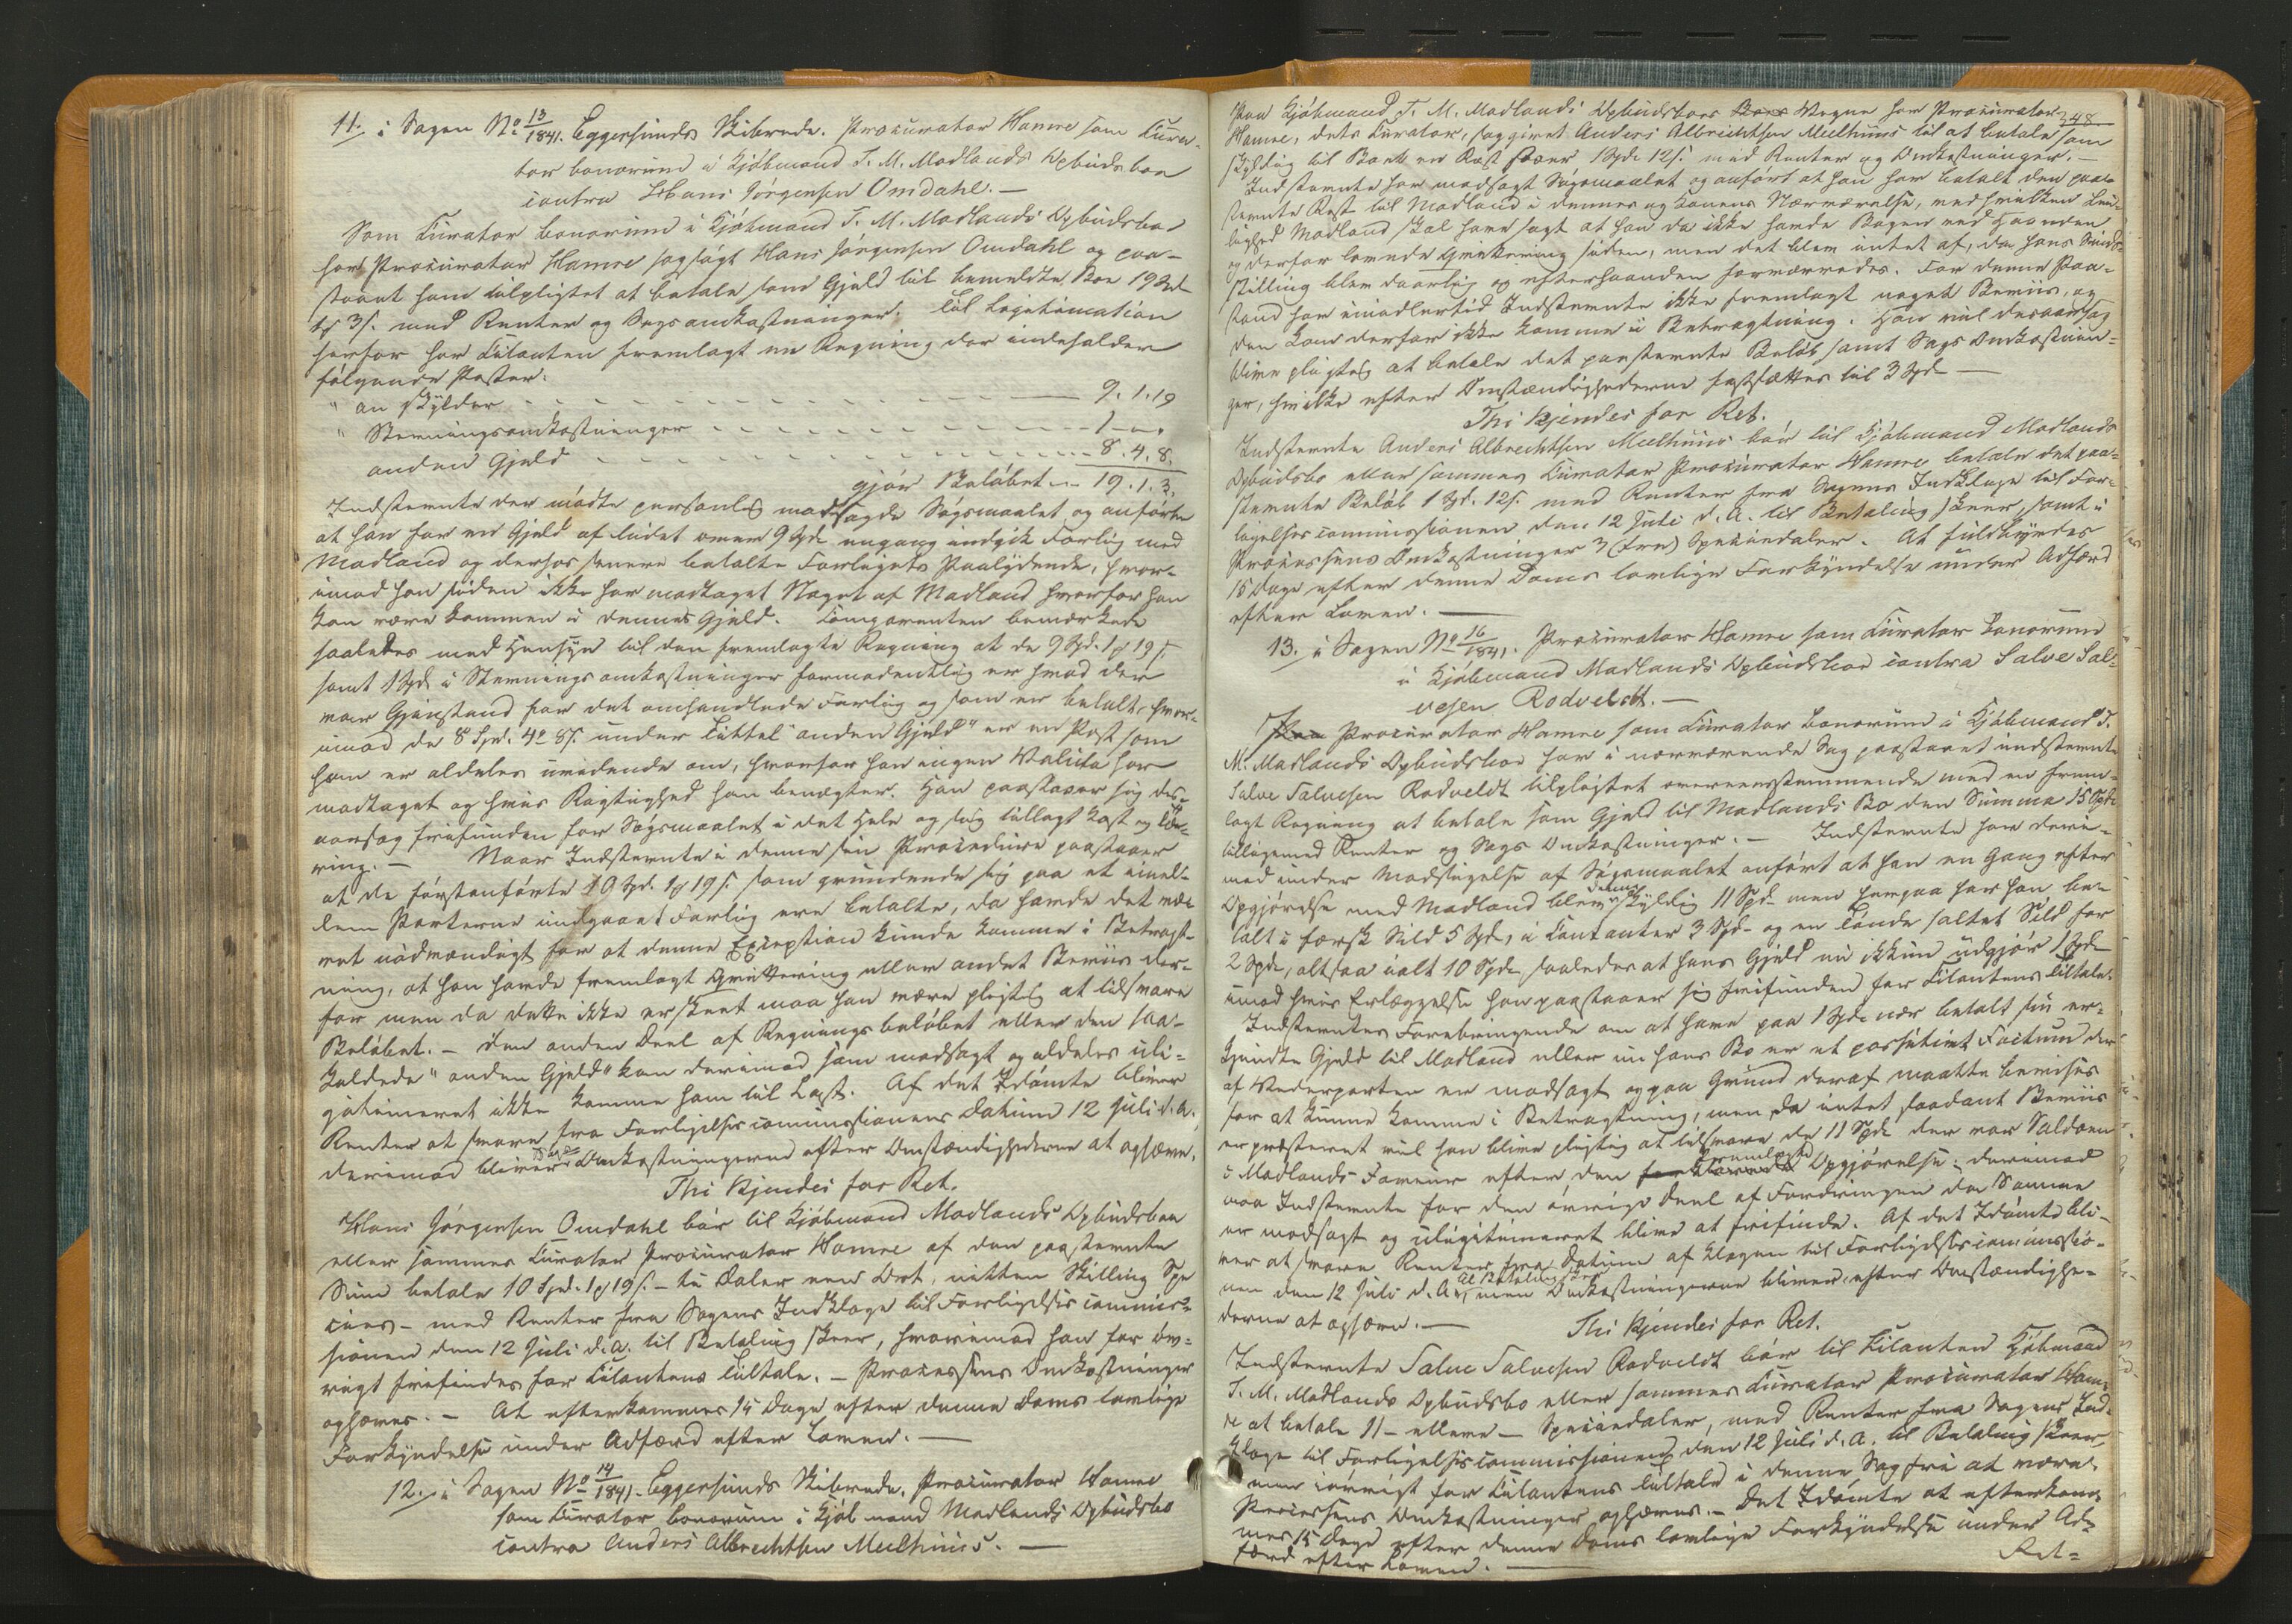 11. i Sagen No 13/1841. Eggersunds Skibrede. Procurator Hamre som Cura-
tor bonorum i Kjöbmand T. M. Madlands Opbudsboe
contra Hans Jörgensen Omdahl. —
Som Curator bonorum i Kjöbmand T. M. Madlands Opbudsbo
har Procurator Hamre sagsögt Hans Jörgensen Omdahl og paa-
staaet ham tilpligtet at betale som Gjeld til bemeldte Boe 19 Spd
1 ß 3 s. med Renter og Sagsomkostninger. Til Legitimation
herfor har Citanten fremlagt en Regning der indeholder
fölgende Poster:
" an skylder - - - 9. 1. 19
" Stevningsomkostninger - - - 1 - " -
anden Gjeld - - - 8. 4. 8.
gjör Belöbet - - 19. 1. 3.
Indstevnte der mödte personlig modsagde Sögsmaalet og anförte
at han for en Gjeld af lidet over 9 Spd engang indgik Forlig med
Madland og derhos senere betalte Forligets Paalydende, hvor-
imod han siden ikke har modtaget Noget af Madland hvorfor han
kan være kommen i dennes Gjeld. Comparenten bemærkede
saaledes med Hensyn til den fremlagte Regning at de 9 Spd. 1 ß 19 s.
samt 1 Spd i Stevningsomkostninger formodentlig er hvad der
var Gjenstand for det omhandlede Forlig og som er betalt, hvor-
imod de 8 Spd. 4 o 8 s. under Tittel "anden Gjeld" er en Post som
han er aldeles uvidende om, hvorfor han ingen Valuta har
modtaget og hvis Rigtighed han benægter. Han paastaaer sig des-
aarsag frifunden for Sögsmaalet i det Hele og sig tillagt Kost og Tæ-
ring. — Naar Indstevnte i denne sin Procedure paastaaer
at de förstanförte 10 Spd. 1 ß 19 s. som grundende sig paa et imel-
lem Parterne indgaaet Forlig ere betalte, da havde det væ-
ret nödvendigt for at denne Exception kunde komme i Betragt-
ning, at han havde fremlagt Qvittering eller andet Beviis der-
for men da dette ikke er skeet maa han være pligtig at tilsvare
Belöbet. — Den anden Deel af Regningsbelöbet eller den saa-
kaldede "anden Gjeld" kan derimod som modsagt og aldeles ule-
gitimeret ikke komme ham til Last. Af det Idömte bliver
Renter at svare fra Forligelsescommissionens Datum 12 Juli d. A.
derimod bliver Sags Omkostningerne efter Omstændighederne at ophæve.
Thi Kjendes for Ret.
Hans Jörgensen Omdahl bör til Kjöbmand Madlands Opbudsboe
eller sammes Curator Procurator Hamre af den paastevnte
Sum betale 10 Spd. 1 ß 19 s. — ti Daler een Ort, nitten Skilling Spe-
cies — med Renter fra Sagens Indklage til Forligelsescommis-
sionen den 12 Juli d. A. til Betaling skeer, hvorimod han for öv-
rigt frifindes for Citantens Tiltale. — Processens Omkostninger
ophæves. — At efterkommes 15 Dage efter denne Doms lovlige
Forkyndelse under Adfærd efter Loven. —
12. i Sagen No 14/1841. Eggersunds Skibrede. Procurator Hamre
som Curator bonorum i Kjöbmand Madlands Opbudsbo
contra Anders Albrechtsen Mulhuus. —
348.
Paa Kjöbmand T. M. Madlands Opbudsboes Boes Vegne har Procurator
Hamre, dets Curator, saggivet Anders Albrechtsen Mulhuus til at betale som
skyldig til Boet en Rest stoer 1 Spd. 12 s. med Renter og Omkostninger. —
Indstevnte har modsagt Sögsmaalet og anfört at han har betalt den paa-
stevnte Rest til Madland i dennes og Konens Nærværelse, ved hvilken Lei-
lighed Madland skal have sagt at han da ikke havde Bogen ved Haanden
og derfor lovede Qvittering siden, men det blev intet af, da hans Sinds-
stilling blev daarlig og efterhaanden forværredes. For denne Paa-
stand har imidlertid Indstevnte ikke fremlagt noget Beviis, og
den kan derfor ikke komme i Betragtning. Han vil desaarsag
blive pligtig at betale det paastevnte Belöb samt Sags Omkostnin-
ger, hvilke efter Omstændighederne fastsættes til 3 Spd —
Thi Kjendes for Ret.
Indstevnte Anders Albrechtsen Mulhuus bör til Kjöbmand Madlands
Opbudsbo eller sammes Curator Procurator Hamre betale det paa-
stevnte Belöb 1 Spd. 12 s. med Renter fra Sagens Indklage til For-
ligelsescommissionen den 12 Juli d. A. til Betaling skeer, samt i
Processens Omkostninger 3 (tre) Speciedaler. At fuldbyrdes
15 Dage efter denne Doms lovlige Forkyndelse under Adfærd
efter Loven. —
13. i Sagen No 16/1841. Procurator Hamre som Curator bonorum
i Kjöbmand Madlands Opbudsboe contra Salve Sal-
vesen Rodveldt. —
Procurator Hamre som Curator bonorum i Kjöbmand T.
M. Madlands Opbudsboe har i nærværende Sag paastaaet indstevnte
Salve Salvesen Rodveldt tilpligtet overeensstemmende med en frem-
lagt Regning at betale som Gjeld til Madlands Bo den Summa 15 Spd.
tilligemed Renter og Sags Omkostninger. — Indstevnte har deri-
mod under Modsigelse af Sögsmaalet anfört at han en Gang efter
Opgjörelse med Madland blev denne skyldig 11 Spd. men herpaa har han be-
talt i færsk Sild 5 Spd, i Contanter 3 Spd og en Tönde saltet Sild for
2 Spd, altsaa ialt 10 Spd, saaledes at hans Gjeld nu ikkun udgjör 1 Spd
imod hvis Erlæggelse han paastaaer sig frifunden for Citantens Tiltale.
Indstevntes Forebringende om at have paa 1 Spd nær betalt sin er-
kjendte Gjeld til Madland eller nu hans Bo er et positivt Factum der
af Vederparten er modsagt og paa Grund deraf maatte bevises
for at kunne komme i Betragtning, men da intet saadant Beviis
er præsteret vil han blive pligtig at tilsvare de 11 Spd der var Saldoen
i Madlands Faveur efter den fremlagte Opgjörelse; derimod
maa Indstevnte for den övrige Deel af Fordringen da Samme
er modsagt og ulegitimeret blive at frifinde. Af det Idömte bli-
ver at svare Renter fra Datum af Klagen til Forligelsescommissio-
nen den 12 Juli d. A. til Betaling skeer, men Omkostningerne bliver efter Omstændighe-
derne at ophæve. —
Thi Kjendes for Ret.
Indstevnte Salve Salvesen Rodveldt bör til Citanten Kjöbmand
T. M. Madlands Opbudsbo eller sammes Curator Procurator Ham-
re at betale 11 — elleve — Speciedaler, med Renter fra Sagens Ind-
klage til Forligelsescommissionen den 12 Juli d. A. til Betaling skeer,
men iövrigt for Citantens Tiltale i denne Sag fri at være.
Processens Omkostninger ophæves. — Det Idömte at efterkom-
mes 15 Dage efter denne Doms lovlige Forkyndelse under Ad-
færd efter Loven. —
Ret-